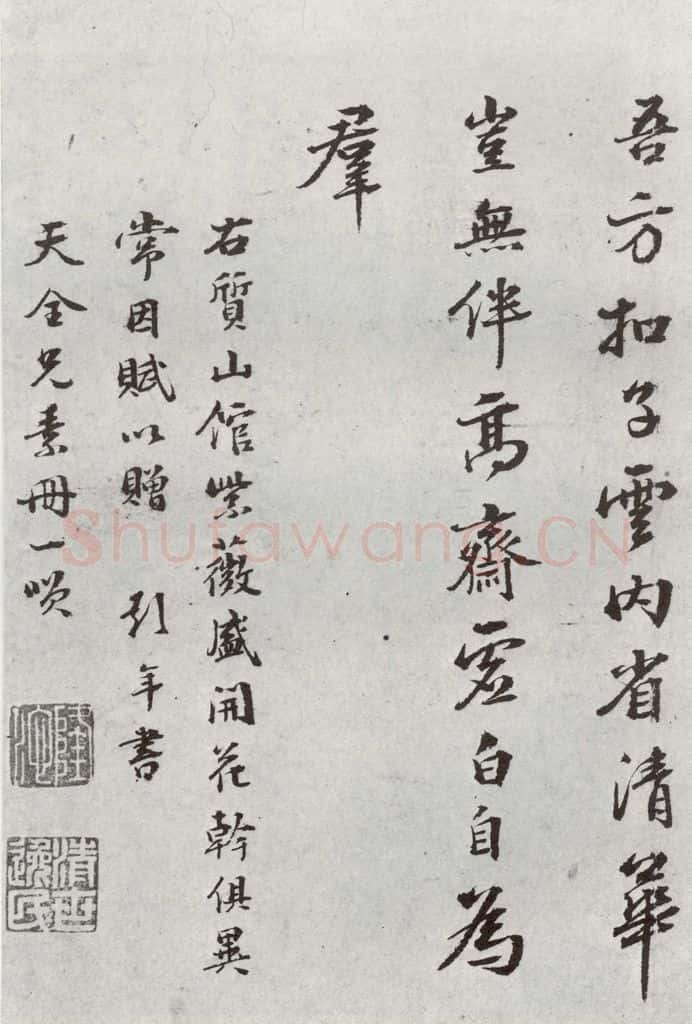 吾方扣子雲內省清華
豈無伴高齋虛白自為
羣
右質山館紫薇盛開花幹俱異
常因賦以贈 彭年書
天全兄素冊一咲
清世逸民
Shufawang.CN